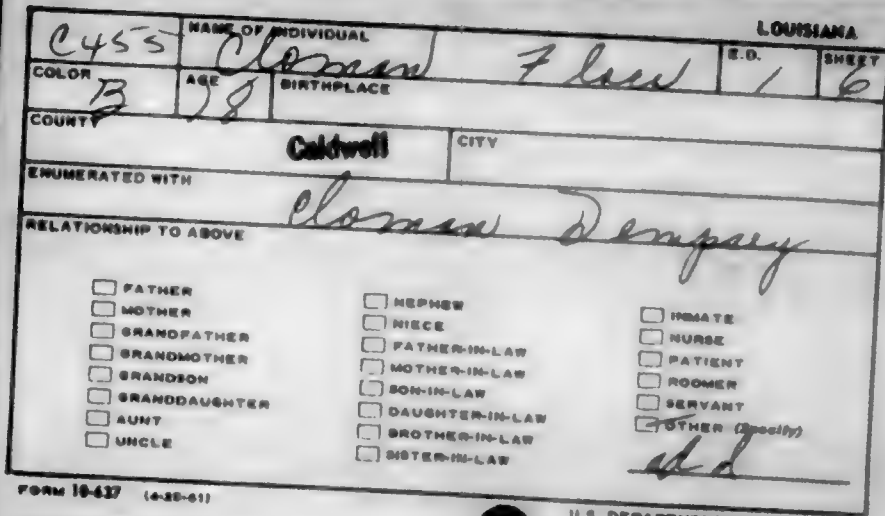 LOUISIANA
C455 NAME OF INDIVIDUAL Cloman E.D. 1 SHEET 6
COLOR B AGE 18 BIRTHPLACE
COUNTY Caldwell CITY
ENUMERATED WITH Cloman Dempsey
RELATIONSHIP TO ABOVE
FATHER
MOTHER
GRANDFATHER
GRANDMOTHER
GRANDSON
GRANDDAUGHTER
AUNT
UNCLE
NEPHEW
NIECE
FATHER-IN-LAW
MOTHER-IN-LAW
SON-IN-LAW
DAUGHTER-IN-LAW
BROTHER-IN-LAW
SISTER-IN-LAW
INMATE
NURSE
PATIENT
ROOMER
SERVANT
OTHER (Specify)
FORM 10-637 (4-25-61)
U.S. DEPARTM